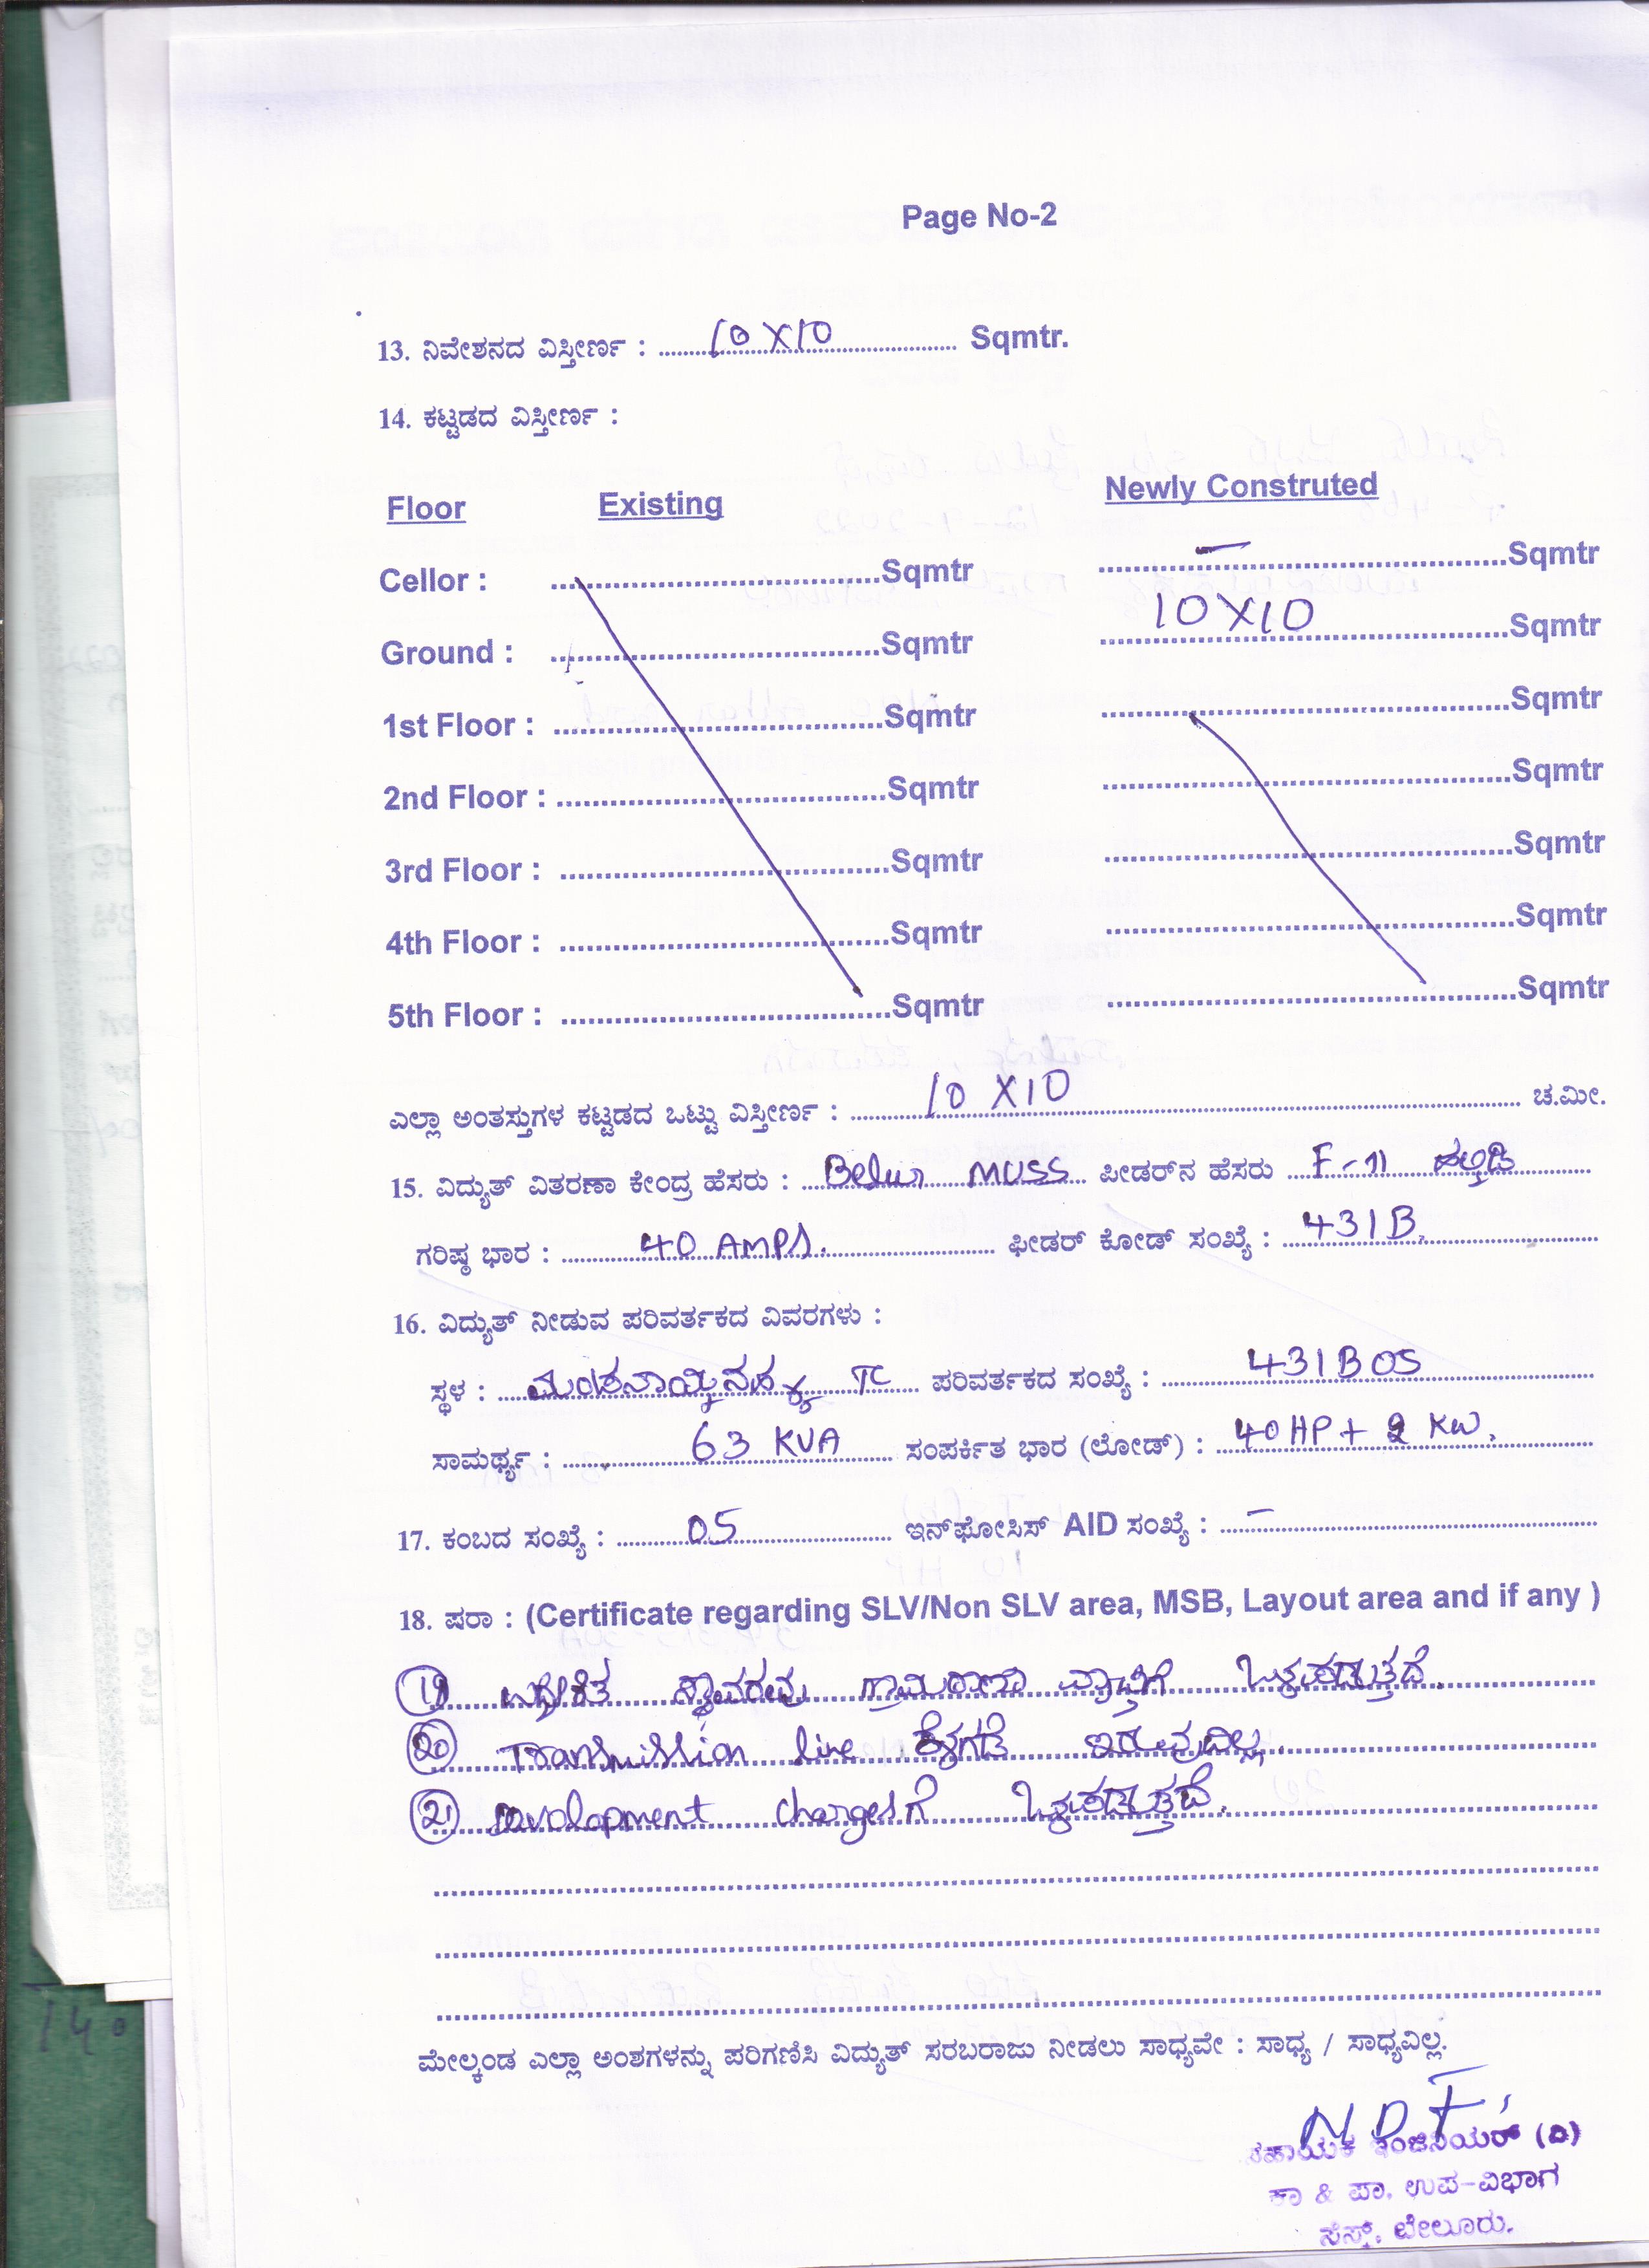 Page No-2
13. ನಿವೇಶನದ ವಿಸ್ತೀರ್ಣ : 10 X 10 Sqmtr.
14. ಕಟ್ಟಡದ ವಿಸ್ತೀರ್ಣ :
Floor Existing Newly Construted
Cellor : Sqmtr – Sqmtr
Ground : Sqmtr 10 X 10 Sqmtr
1st Floor : Sqmtr Sqmtr
2nd Floor : Sqmtr Sqmtr
3rd Floor : Sqmtr Sqmtr
4th Floor : Sqmtr Sqmtr
5th Floor : Sqmtr Sqmtr
ಎಲ್ಲಾ ಅಂತಸ್ತುಗಳ ಕಟ್ಟಡದ ಒಟ್ಟು ವಿಸ್ತೀರ್ಣ : 10 X 10 ಚ.ಮೀ.
15. ವಿದ್ಯುತ್ ವಿತರಣಾ ಕೇಂದ್ರ ಹೆಸರು : Belur MUSS ಪೀಡರ್‌ನ ಹೆಸರು F-11
ಗರಿಷ್ಠ ಭಾರ : 40 AMPS. ಫೀಡರ್ ಕೋಡ್ ಸಂಖ್ಯೆ : 431B.
16. ವಿದ್ಯುತ್ ನೀಡುವ ಪರಿವರ್ತಕದ ವಿವರಗಳು :
ಸ್ಥಳ : TC ಪರಿವರ್ತಕದ ಸಂಖ್ಯೆ : 431B05
ಸಾಮರ್ಥ್ಯ : 63 KVA ಸಂಪರ್ಕಿತ ಭಾರ (ಲೋಡ್) : 40 HP + 2 KW.
17. ಕಂಬದ ಸಂಖ್ಯೆ : 05 ಇನ್‌ಫೋಸಿಸ್ AID ಸಂಖ್ಯೆ : –
18. ಷರಾ : (Certificate regarding SLV/Non SLV area, MSB, Layout area and if any )
19 ಸ್ಥಾವರವು ಗ್ರಾಮಠಾಣಾ ವ್ಯಾಪ್ತಿಗೆ ಒಳಪಡುತ್ತದೆ.
20 Transmission line ಕೆಳಗಡೆ ಇರುವುದಿಲ್ಲ.
21 Devolopment chargesಗೆ ಒಳಪಡುತ್ತದೆ.
ಮೇಲ್ಕಂಡ ಎಲ್ಲಾ ಅಂಶಗಳನ್ನು ಪರಿಗಣಿಸಿ ವಿದ್ಯುತ್ ಸರಬರಾಜು ನೀಡಲು ಸಾಧ್ಯವೇ : ಸಾಧ್ಯ / ಸಾಧ್ಯವಿಲ್ಲ.
ಸಹಾಯಕ ಇಂಜಿನಿಯರ್ (ವಿ)
ಕಾ & ಪಾ. ಉಪ-ವಿಭಾಗ
ಸೆಸ್ಕ್, ಬೇಲೂರು.